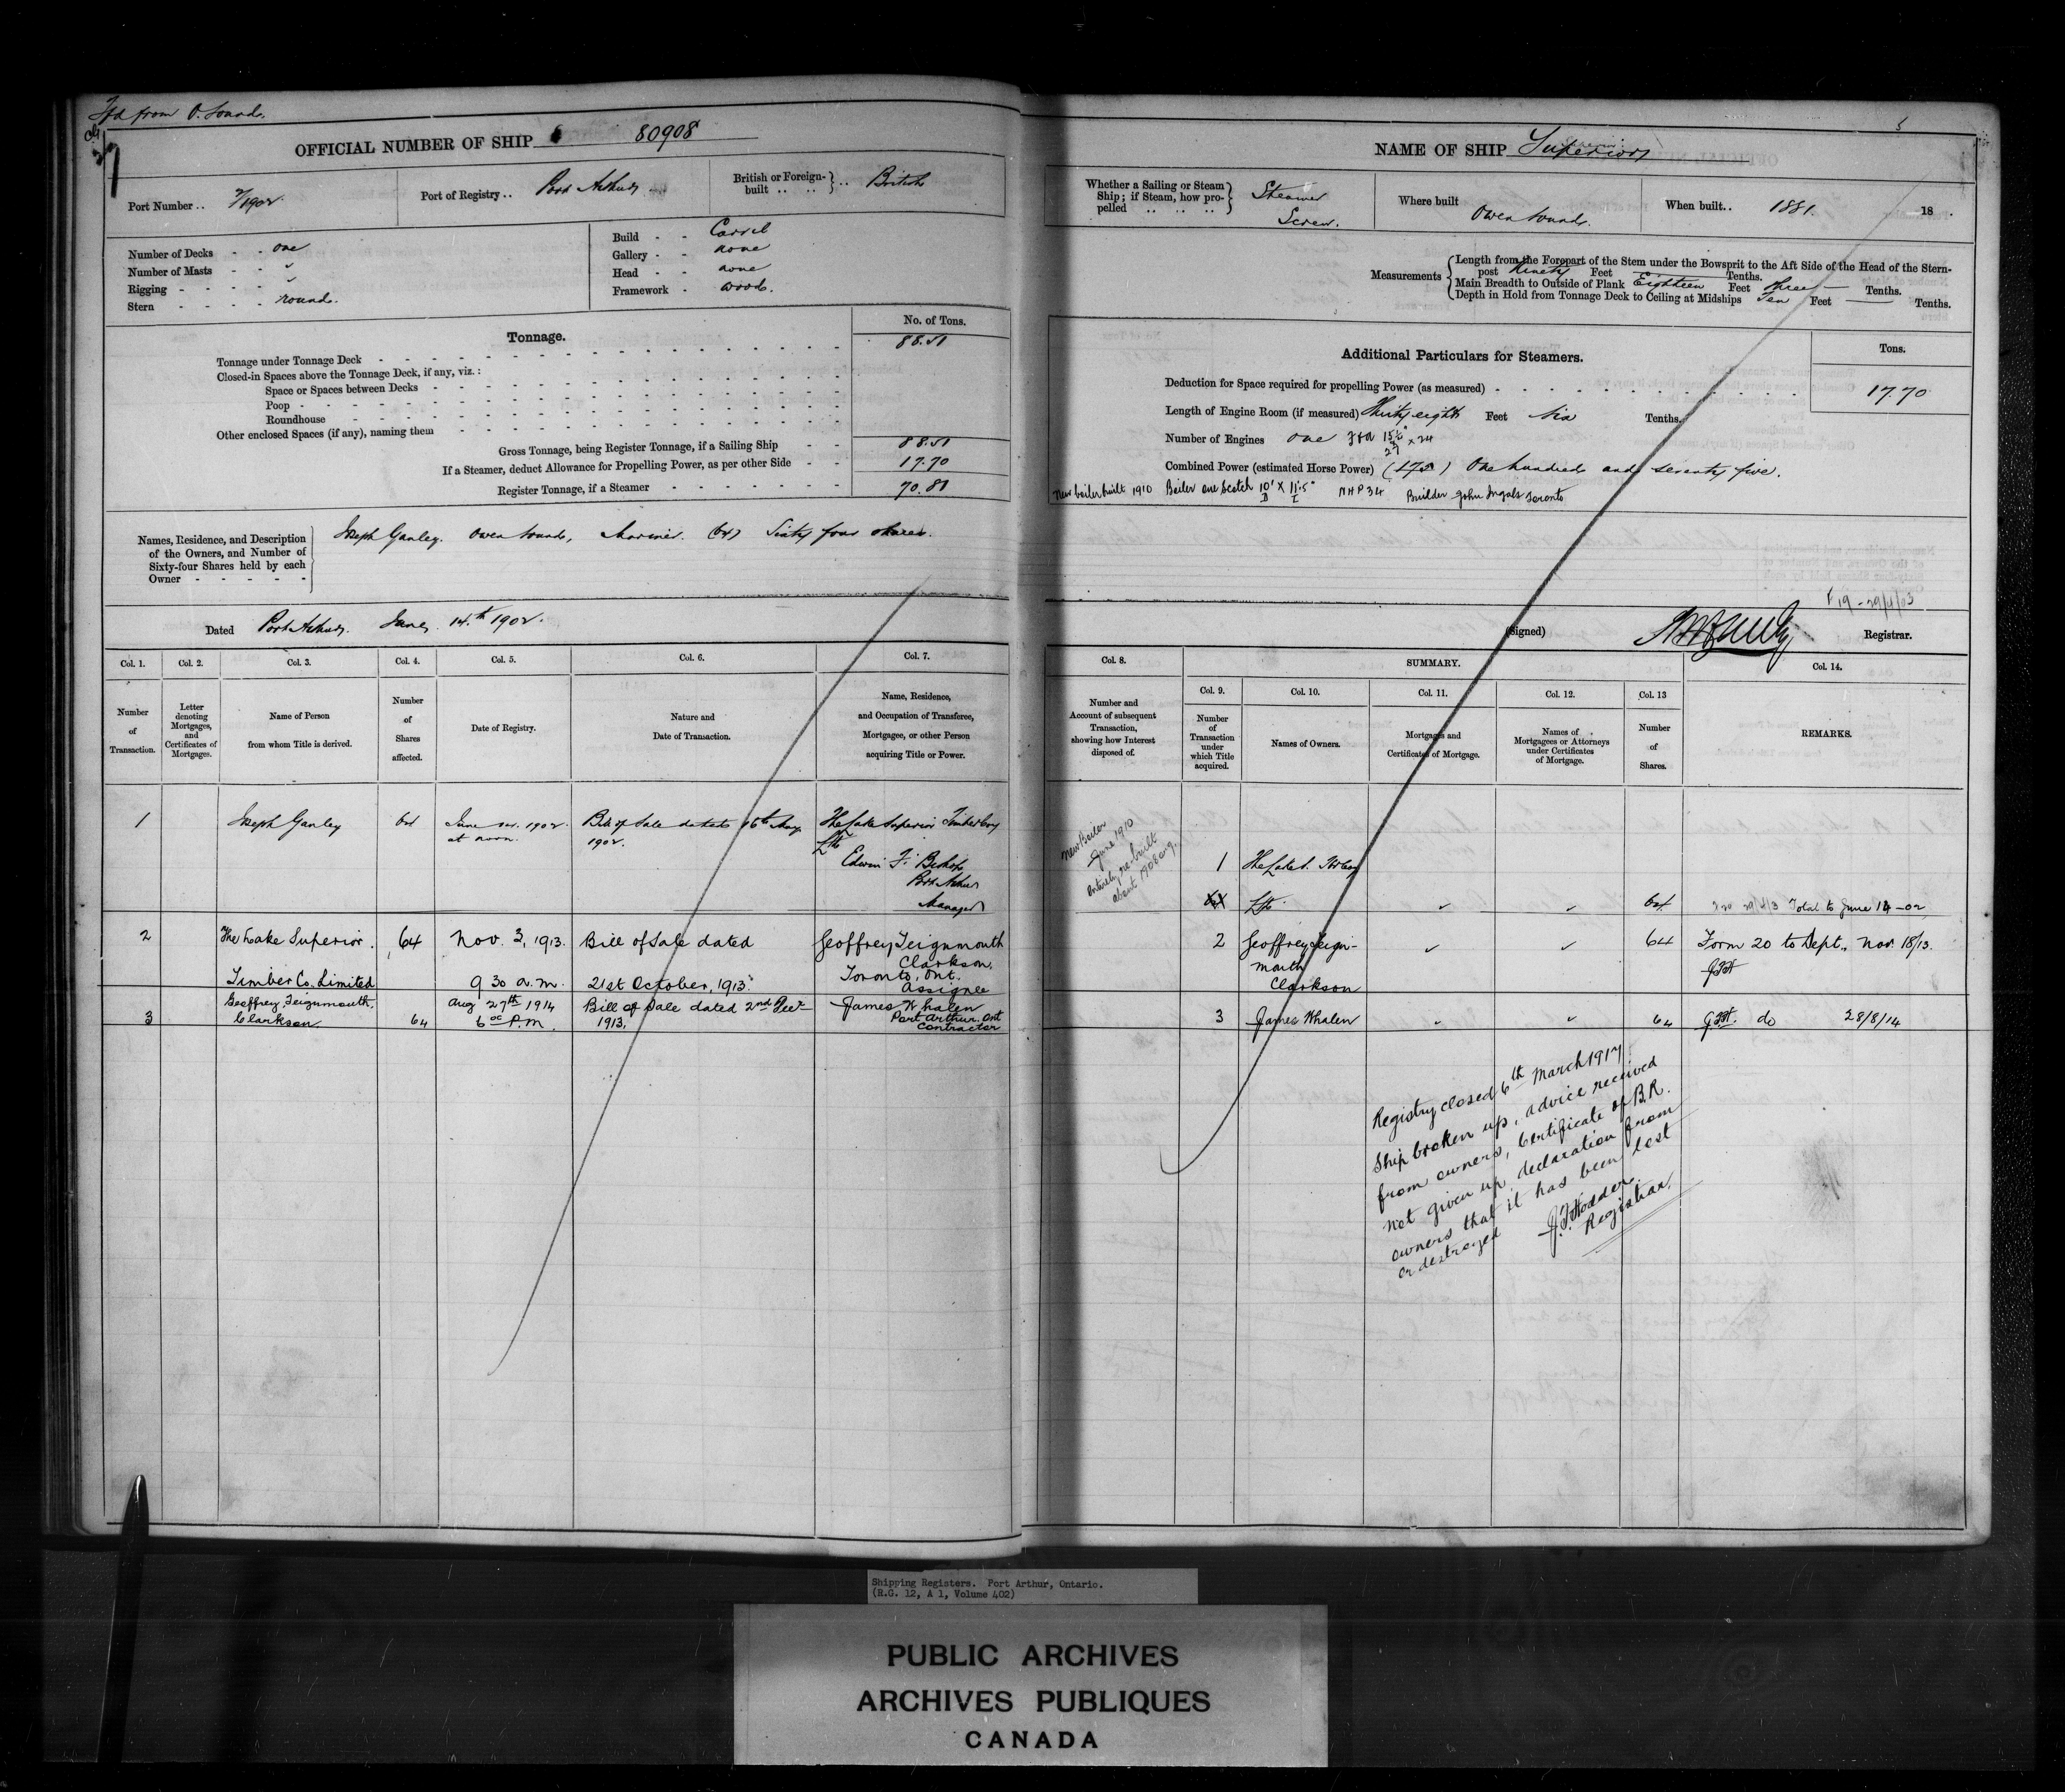 Tfd from O. Sound.
OFFICIAL NUMBER OF SHIP 80908
Port Number .. 2/1902
Port of Registry .. Port Arthur
British or Foreign-built .. .. } .. British
Number of Decks - - one
Number of Masts - - "
Rigging - - - - "
Stern - - - - round.
Build - - Carvel
Gallery - - none
Head - - none
Framework - wood.
Tonnage.
No. of Tons.
Tonnage under Tonnage Deck 88.51
Closed-in Spaces above the Tonnage Deck, if any, viz. :
Space or Spaces between Decks
Poop
Roundhouse
Other enclosed Spaces (if any), naming them
Gross Tonnage, being Register Tonnage, if a Sailing Ship 88.51
If a Steamer, deduct Allowance for Propelling Power, as per other Side 17.70
Register Tonnage, if a Steamer 70.81
Names, Residence, and Description of the Owners, and Number of Sixty-four Shares held by each Owner
Joseph Ganley. Owen Sound, Mariner. (64) Sixty four shares.
Dated Port Arthur. June 14.th 1902.
Col. 1. Col. 2. Col. 3. Col. 4. Col. 5. Col. 6. Col. 7.
Number of Transaction.
Letter denoting Mortgages, and Certificates of Mortgages.
Name of Person from whom Title is derived.
Number of Shares affected.
Date of Registry.
Nature and Date of Transaction.
Name, Residence, and Occupation of Transferee, Mortgagee, or other Person acquiring Title or Power.
1 Joseph Ganley 64 June 1902. at noon. Bill of Sale dated 16th May 1902. The Lake Superior Timber Coy Ltd
Edwin F. Bishop
Port Arthur
Manager
2 The Lake Superior Timber Co. Limited 64 Nov. 3, 1913. 9 30 a.m. Bill of Sale dated 21st October, 1913. Geoffrey Teignmouth Clarkson, Toronto, Ont. Assignee
3 Geoffrey Teignmouth Clarkson 64 Aug 27th 1914 6 oc P.M. Bill of Sale dated 2nd Decr 1913. James Whalen Port Arthur. Ont Contractor
5
NAME OF SHIP Superior
Whether a Sailing or Steam Ship; if Steam, how propelled .. .. .. } Steamer Screw.
Where built Owen Sound.
When built.. 1881. 18 .
Measurements
Length from the Forepart of the Stem under the Bowsprit to the Aft Side of the Head of the Stern-
post Ninety Feet — Tenths.
Main Breadth to Outside of Plank Eighteen Feet three Tenths.
Depth in Hold from Tonnage Deck to Ceiling at Midships Ten Feet — Tenths.
Additional Particulars for Steamers.
Tons.
Deduction for Space required for propelling Power (as measured) 17.70
Length of Engine Room (if measured) Thirty eight Feet six Tenths.
Number of Engines one F & A 15½" x 24
27
Combined Power (estimated Horse Power) (175) One hundred and seventy five.
New boiler built 1910 Boiler one Scotch 10' x 11'.5" NHP 34 Builder John Inglis Toronto
D L
F 19 - 29/4/03
(Signed) Registrar.
Col. 8. SUMMARY. Col. 14.
Col. 9. Col. 10. Col. 11. Col. 12. Col. 13
Number and Account of subsequent Transaction, showing how Interest disposed of.
Number of Transaction under which Title acquired.
Names of Owners.
Mortgages and Certificates of Mortgage.
Names of Mortgagees or Attorneys under Certificates of Mortgage.
Number of Shares.
REMARKS.
New Boiler
June 1910
Entirely re-built
about 1908
1 The Lake S. Tbr Coy
Ltd. 64 Total to June 14 - 02
2 Geoffrey Teignmouth Clarkson 64 Form 20 to Dept., Nov. 18/13.
JFH
3 James Whalen 64 JFH. do 28/8/14
Registry closed 6th March 1917
Ship broken up, advice received
from owners, Certificate of B.R.
not given up, declaration from
owners that it has been lost
or destroyed
J.F. Hodder.
Registrar.
Shipping Registers. Port Arthur, Ontario.
(R.G. 12, A 1, Volume 402)
PUBLIC ARCHIVES
ARCHIVES PUBLIQUES
CANADA